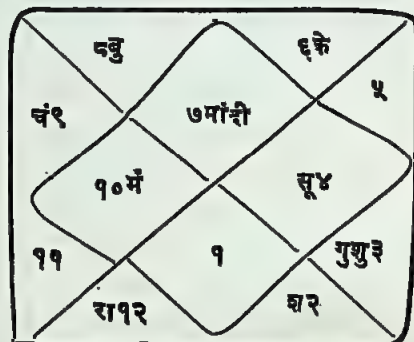 ८बु ६के
चं९ ७मांदी ५
१०मं सू४
११ १ गुशु३
रा१२ श२